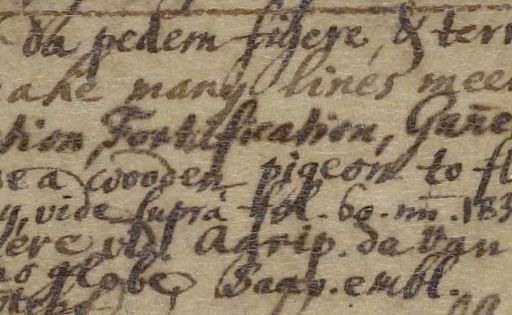 da pedem figere, & terr
ake many lines mee
tion, Fortification, Gun̄e
se a wooden pigeon to fl
y, vide supra fol. 60. nū. 183
ere vid. Agrip. da Van
ng globe,